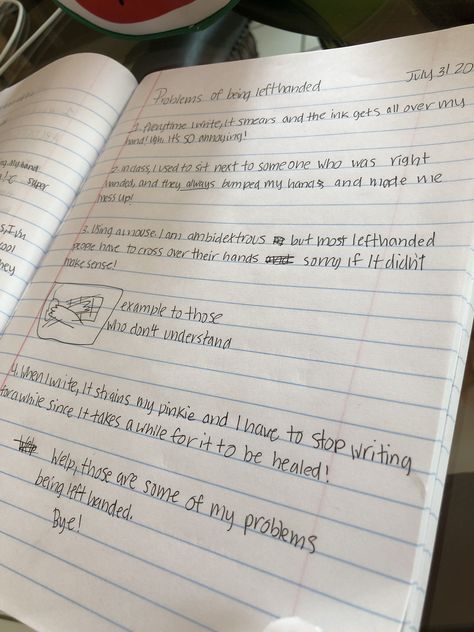 Problems of being lefthanded
July 31 20
1. Everytime I write, it smears and the ink gets all over my
hand! Ugh, it's SO annoying!
2. In class, I used to sit next to someone who was right
handed, and they always bumped my hands and made me
mess up!
3. Using a mouse. I am ambidextrous but most lefthanded
people have to cross over their hands sorry if it didn't
make sense!
example to those
who don't understand
4. When I write, it strains my pinkie and I have to stop writing
for a while since it takes a while for it to be healed!
Welp, those are some of my problems
being left handed.
Bye!
my hand
super
I'm
cool
hey